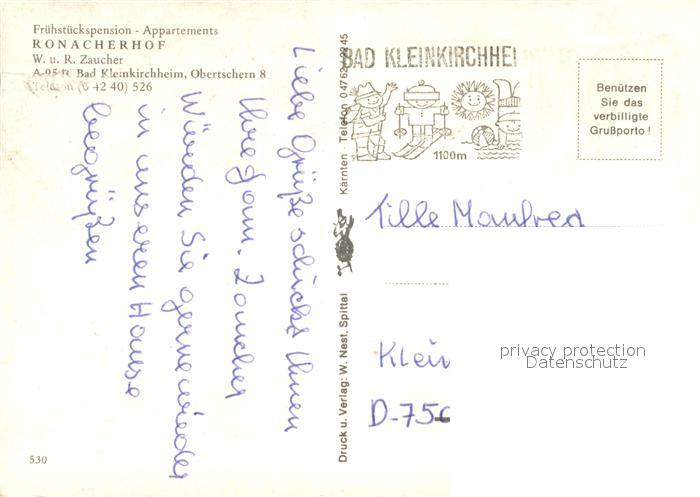 Frühstückspension - Appartements
RONACHERHOF
W. u. R. Zaucher
A-95 Bad Kleinkirchheim, Obertschern 8
Telefon (0 42 40) 526
Liebe Grüße schickt Ihnen
Ihre Fam. Zaucher
Würden Sie gerne wieder
in unseren Hause
begrüßen
530
Kärnten - Telefon 04762
Druck u. Verlag: W. Nest, Spittal
BAD KLEINKIRCHHEI
1100m
Benützen
Sie das
verbilligte
Grußporto!
Tille Manfred
Klein
D-756
privacy protection
Datenschutz